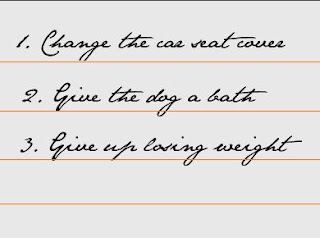 1. Change the car seat cover
2. Give the dog a bath
3. Give up losing weight